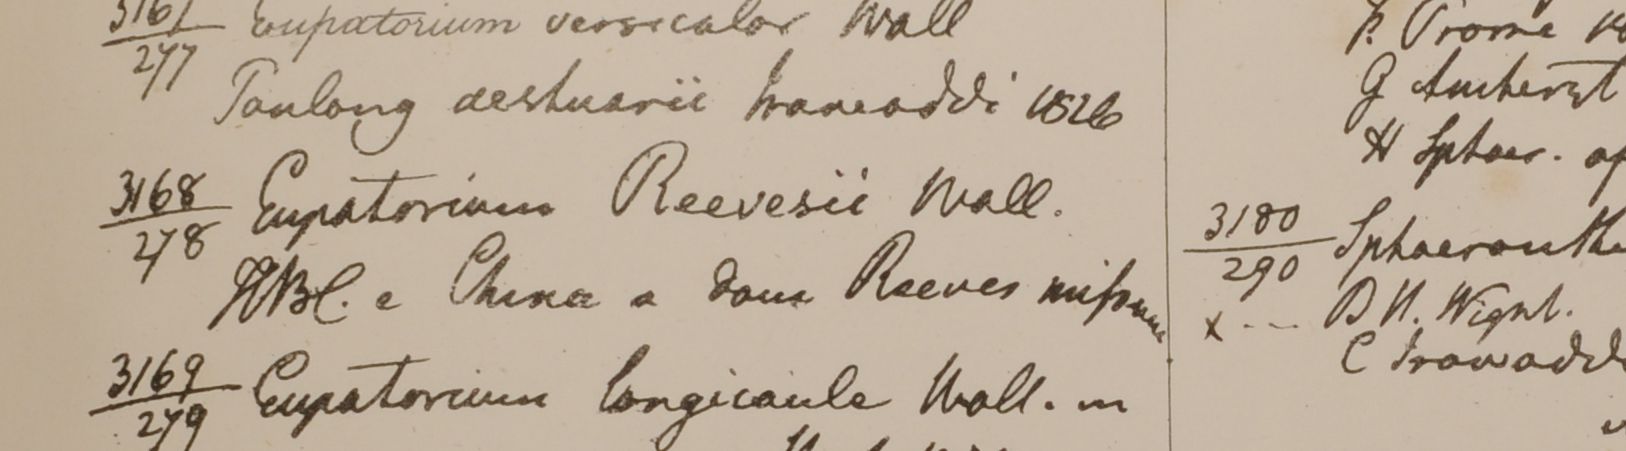 3167
277
Eupatorium versicolor Wall
Toulong aestuarii Irawaddi 1826
3168
278
Eupatorium Reevesii Wall.
HBC. e China a dom Reeves missum
3169
279
Eupatorium longicaule Wall. in
F. Prome
G Amherst
H Sphaer.
3180
290
Sphaeranthe
x -- D H. Wight.
C Irawadd